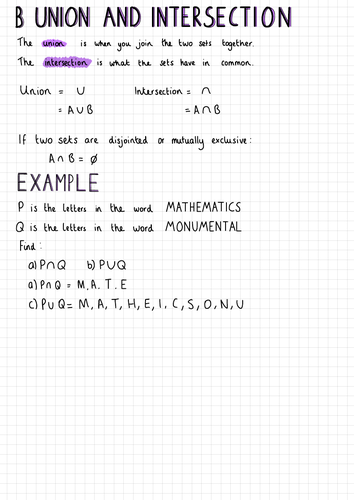 B UNION AND INTERSECTION
The union is when you join the two sets together.
The intersection is what the sets have in common.
Union = ∪ Intersection = ∩
= A∪B = A∩B
If two sets are disjointed or mutually exclusive:
A∩B = ∅
EXAMPLE
P is the letters in the word MATHEMATICS
Q is the letters in the word MONUMENTAL
Find:
a) P∩Q b) P∪Q
a) P∩Q = M, A, T, E
c) P∪Q = M, A, T, H, E, I, C, S, O, N, U